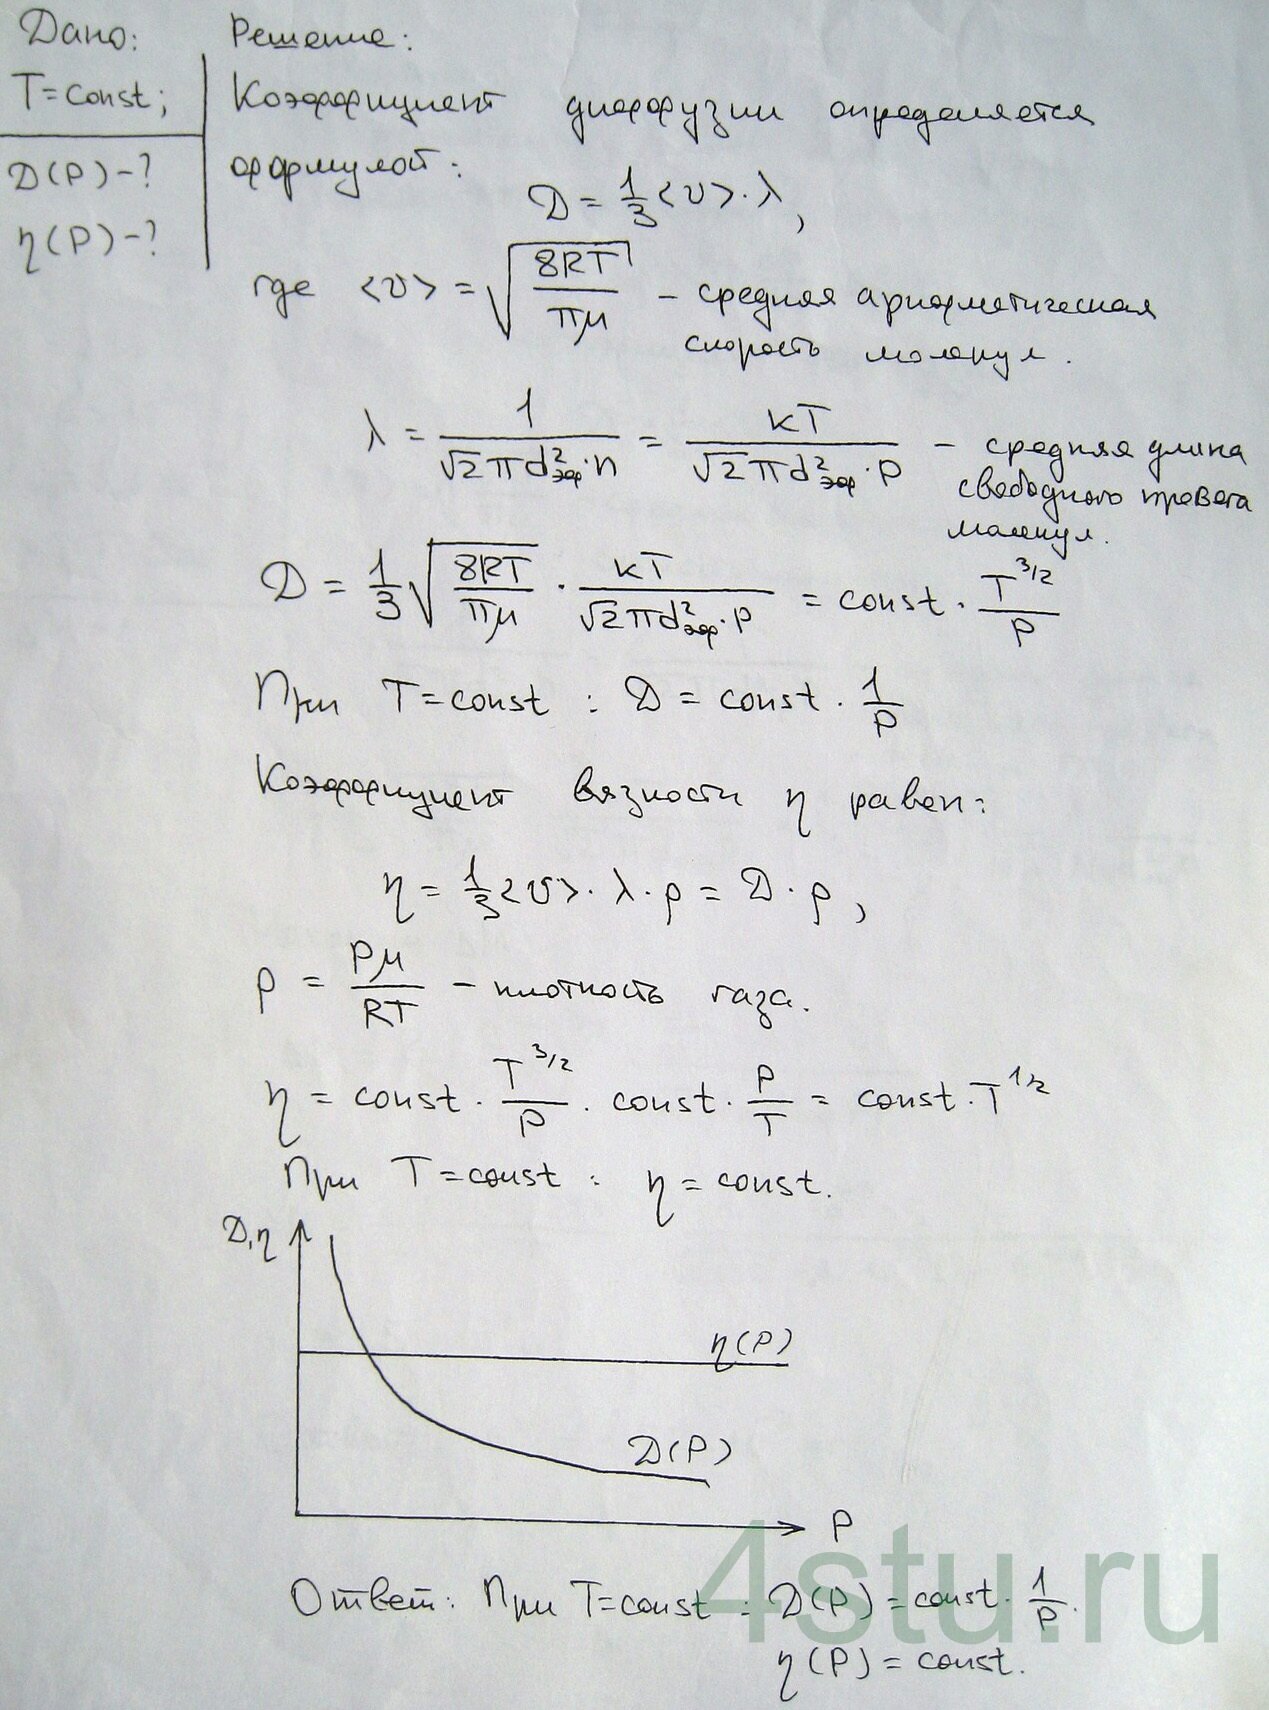 Дано:
T=const;
D(P)-?
η(P)-?
Решение:
Коэффициент диффузии определяется
формулой:
D = 1/3 <υ>·λ,
где <υ> = √(8RT/πμ) - средняя арифметическая
скорость молекул.
λ = 1/(√2πd²эф·n) = kT/(√2πd²эф·P) - средняя длина
свободного пробега
молекул.
D = 1/3 √(8RT/πμ) · kT/(√2πd²эф·P) = const · T^3/2/P
При T=const : D = const · 1/P
Коэффициент вязкости η равен:
η = 1/3 <υ>·λ·ρ = D·ρ,
ρ = Pμ/RT - плотность газа.
η = const · T^3/2/P · const · P/T = const·T^1/2
При T=const : η = const.
D,η
η(P)
D(P)
P
Ответ: При T=const : D(P) = const · 1/P.
η(P) = const.
4stu.ru